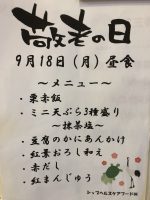 敬老の日
9月18日（月）昼食
～メニュー～
・栗赤飯
・ミニ天ぷら3種盛り
～抹茶塩～
・豆腐のかにあんかけ
・紅葉おろし和え
・赤だし
・紅まんじゅう
シップヘルスケアフード㈱